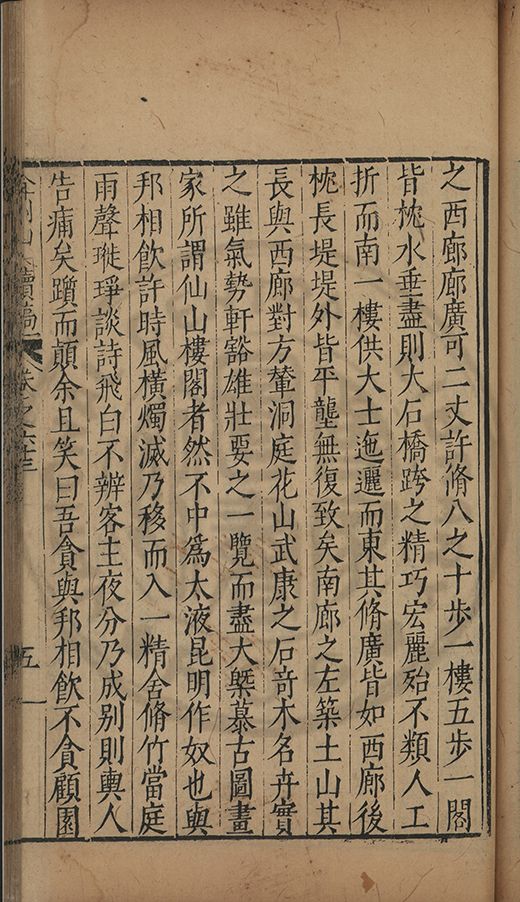 之西廊廊廣可二丈許脩八之十步一樓五步一閣
皆枕水垂盡則大石橋跨之精巧宏麗殆不類人工
折而南一樓供大士迤邐而東其脩廣皆如西廊後
枕長堤堤外皆平壟無復致矣南廊之左築土山其
長與西廊對方輦洞庭花山武康之石奇木名卉實
之雖氣勢軒豁雄壯要之一覽而盡大槩慕古圖畫
家所謂仙山樓閣者然不中爲太液昆明作奴也與
邦相飲許時風橫燭滅乃移而入一精舍脩竹當庭
雨聲琤琤談詩飛白不辨客主夜分乃成别則輿人
告痡矣躓而顛余且笑曰吾貪與邦相飲不貪顧園
續
卷之六十三
五